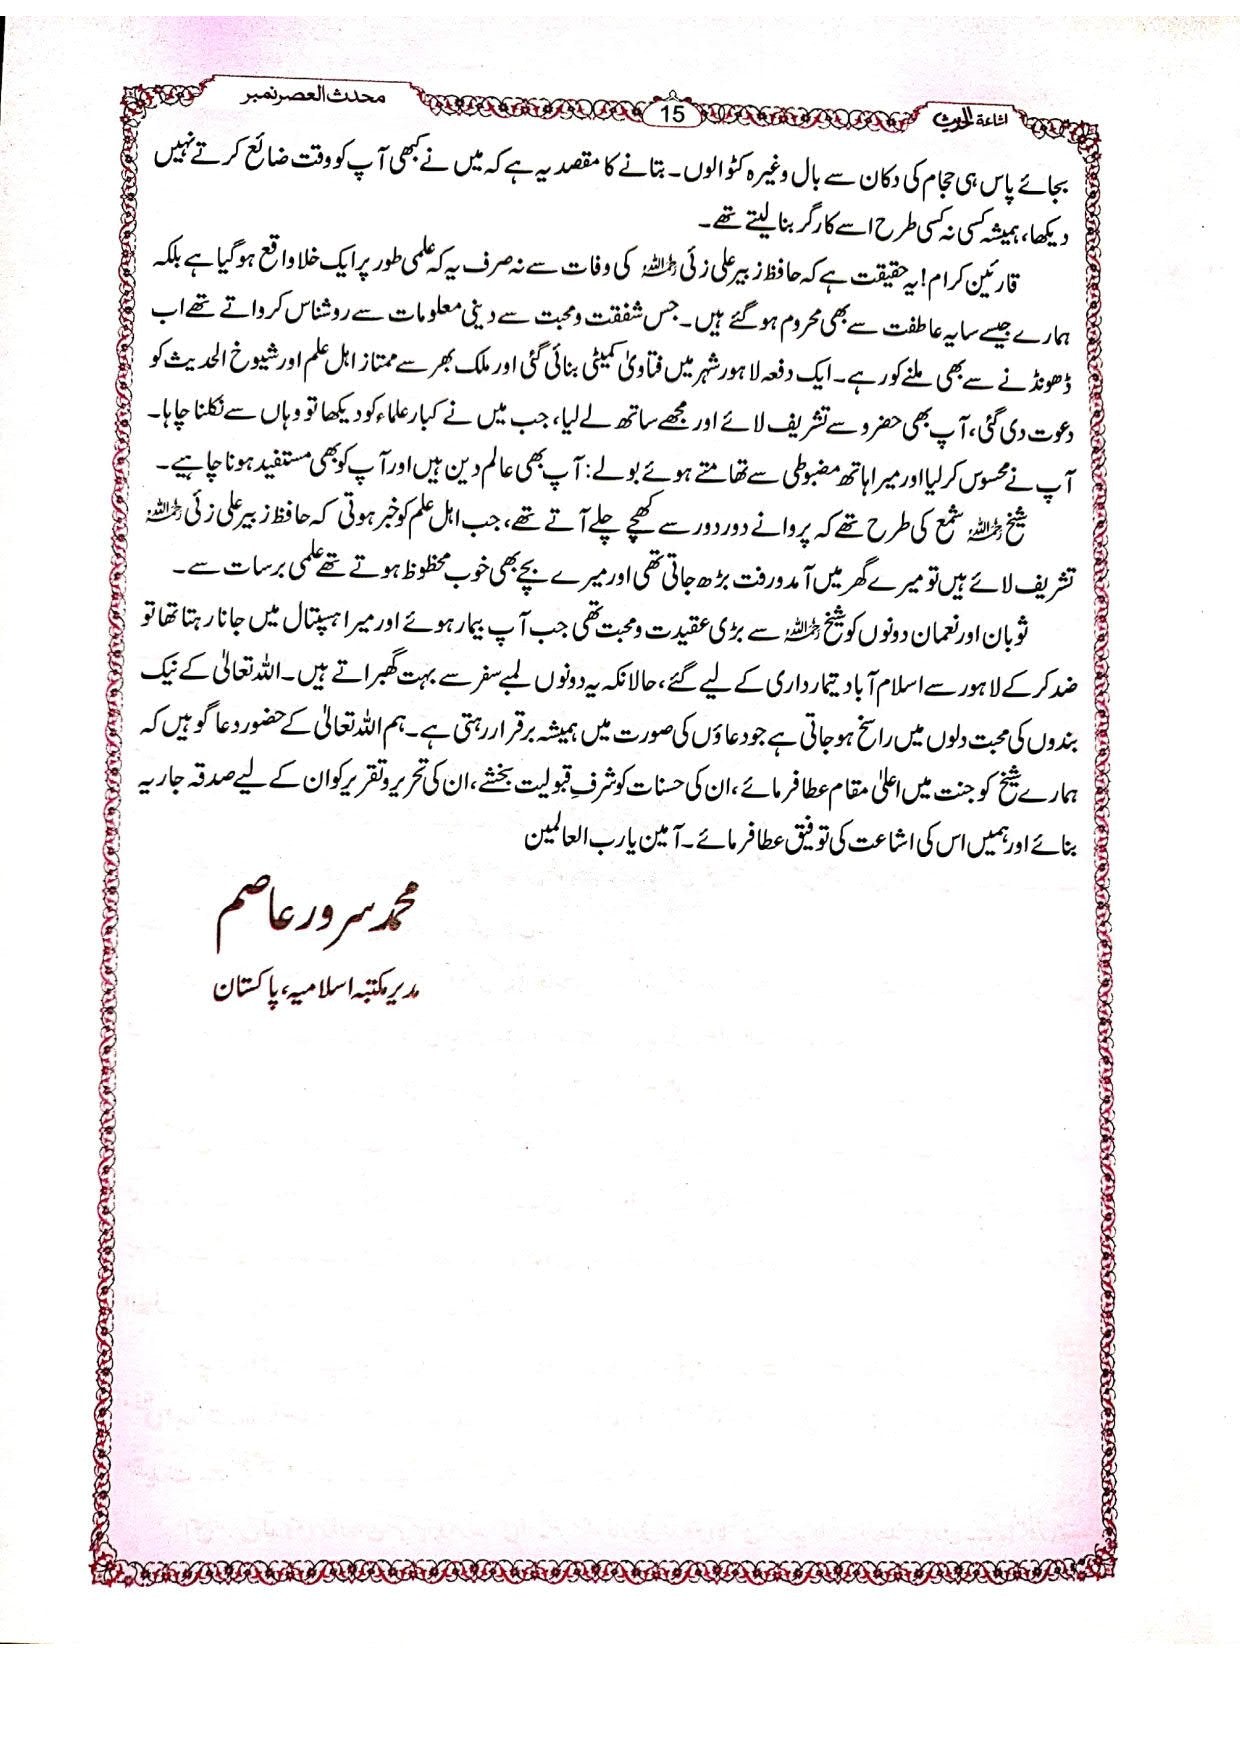 اشاعۃ الحدیث
15
محدث العصر نمبر
بجائے پاس ہی حجام کی دکان سے بال وغیرہ کٹوا لوں۔ بتانے کا مقصد یہ ہے کہ میں نے کبھی آپ کو وقت ضائع کرتے نہیں
دیکھا، ہمیشہ کسی نہ کسی طرح اسے کارگر بنا لیتے تھے۔
قارئین کرام! یہ حقیقت ہے کہ حافظ زبیر علی زئی رحمہ اللہ کی وفات سے نہ صرف یہ کہ علمی طور پر ایک خلا واقع ہو گیا ہے بلکہ
ہمارے جیسے سایہ عاطفت سے بھی محروم ہو گئے ہیں۔ جس شفقت ومحبت سے دینی معلومات سے روشناس کرواتے تھے اب
ڈھونڈنے سے بھی ملنے کو رہے۔ ایک دفعہ لاہور شہر میں فتاویٰ کمیٹی بنائی گئی اور ملک بھر سے ممتاز اہل علم اور شیوخ الحدیث کو
دعوت دی گئی، آپ بھی حضرو سے تشریف لائے اور مجھے ساتھ لے لیا، جب میں نے کبار علماء کو دیکھا تو وہاں سے نکلنا چاہا۔
آپ نے محسوس کر لیا اور میرا ہاتھ مضبوطی سے تھامتے ہوئے بولے: آپ بھی عالم دین ہیں اور آپ کو بھی مستفید ہونا چاہیے۔
شیخ رحمہ اللہ شمع کی طرح تھے کہ پروانے دور دور سے کھچے چلے آتے تھے، جب اہل علم کو خبر ہوتی کہ حافظ زبیر علی زئی رحمہ اللہ
تشریف لائے ہیں تو میرے گھر میں آمد ورفت بڑھ جاتی تھی اور میرے بچے بھی خوب محظوظ ہوتے تھے علمی برسات سے۔
ثوبان اور نعمان دونوں کو شیخ رحمہ اللہ سے بڑی عقیدت ومحبت تھی جب آپ بیمار ہوئے اور میرا ہسپتال میں جانا رہتا تھا تو
ضد کر کے لاہور سے اسلام آباد تیمارداری کے لیے گئے، حالانکہ یہ دونوں لمبے سفر سے بہت گھبراتے ہیں۔ اللہ تعالیٰ کے نیک
بندوں کی محبت دلوں میں راسخ ہو جاتی ہے جو دعاؤں کی صورت میں ہمیشہ برقرار رہتی ہے۔ ہم اللہ تعالیٰ کے حضور دعا گو ہیں کہ
ہمارے شیخ کو جنت میں اعلیٰ مقام عطا فرمائے، ان کی حسنات کو شرفِ قبولیت بخشے، ان کی تحریر وتقریر کو ان کے لیے صدقہ جاریہ
بنائے اور ہمیں اس کی اشاعت کی توفیق عطا فرمائے۔ آمین یا رب العالمین
محمد سرور عاصم
مدیر مکتبہ اسلامیہ، پاکستان